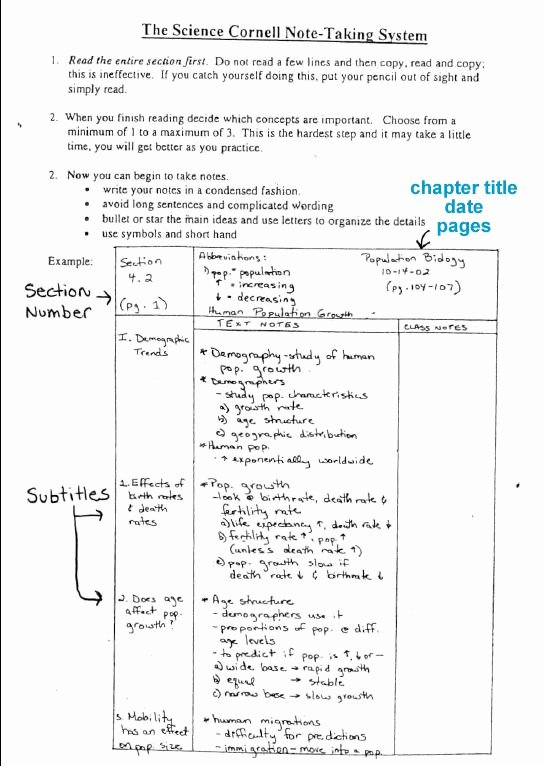 The Science Cornell Note-Taking System
1. Read the entire section first. Do not read a few lines and then copy, read and copy;
this is ineffective. If you catch yourself doing this, put your pencil out of sight and
simply read.
2. When you finish reading decide which concepts are important. Choose from a
minimum of 1 to a maximum of 3. This is the hardest step and it may take a little
time, you will get better as you practice.
2. Now you can begin to take notes.
• write your notes in a condensed fashion.
• avoid long sentences and complicated wording
• bullet or star the main ideas and use letters to organize the details
• use symbols and short hand
chapter title
date
pages
Example:
Section
Number
Section
4.2
(pg. 1)
Abbreviations:
1) pop. = population
↑ = increasing
↓ = decreasing
Human Population Growth
Population Biology
10-14-02
(pg. 104-107)
TEXT NOTES
CLASS NOTES
I. Demographic
Trends
* Demography-study of human
pop. growth.
* Demographers
- study pop. characteristics
a) growth rate
b) age structure
c) geographic distribution
* Human pop.
- ↑ exponentially worldwide
Subtitles
1. Effects of
birth rates
& death
rates
* Pop. growth
- look @ birthrate, death rate &
fertility rate
a) life expectancy ↑, death rate ↓
b) fertility rate ↑, pop ↑
(unless death rate ↑)
c) pop. growth slow if
death rate ↓ & birthrate ↓
2. Does age
affect pop.
growth?
* Age structure
- demographers use it
- proportions of pop. @ diff.
age levels
- to predict if pop. is ↑, ↓ or —
a) wide base → rapid growth
b) equal → stable
c) narrow base → slow growth
3. Mobility
has an effect
on pop. size
* human migrations
- difficulty for predictions
- immigration - move into a pop.